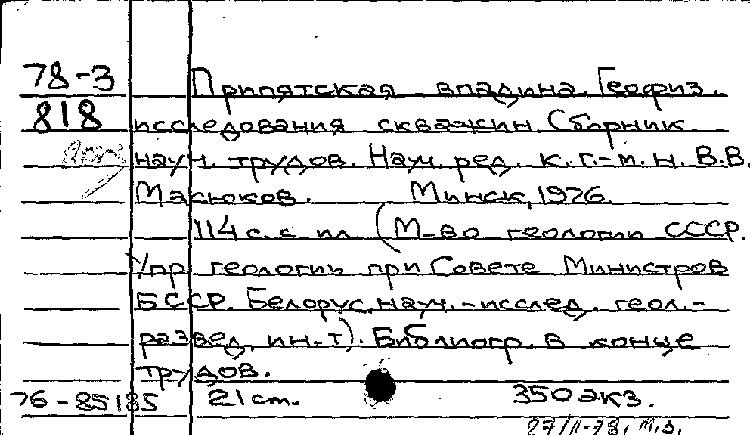 78-3 Припятская впадина. Геофиз.
818 исследования скважин. Сборник
науч. трудов. Науч. ред. к.г.-м.н. В.В.
Масюков. Минск, 1976.
114 с. с ил (М-во геологии СССР.
Упр геологии при Совете Министров
БССР. Белорус. науч.-исслед. геол.-
развед. ин-т). Библиогр. в конце
трудов.
76-85185 21 cm. 350 экз.